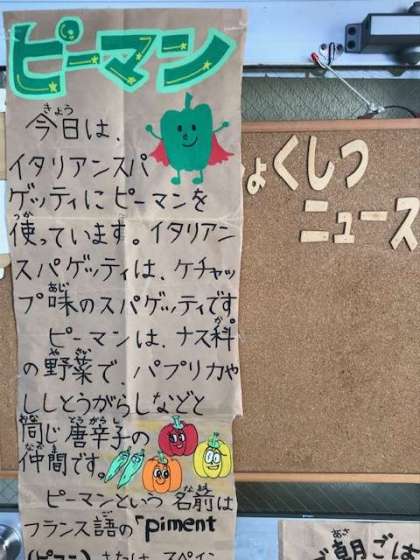 ピーマン
今日は、
きょう
イタリアンスパ
ゲッティにピーマンを
使っています。イタリアン
つか
スパゲッティは、ケチャッ
プ味のスパゲッティです。
あじ
ピーマンは、ナス科
か
の野菜で、パプリカや
やさい
ししとうがらしなどと
同じ唐辛子の
おな とうがらし
仲間です。
なかま
ピーマンという名前は
なまえ
フランス語の「piment
ょくしつ
ニュース